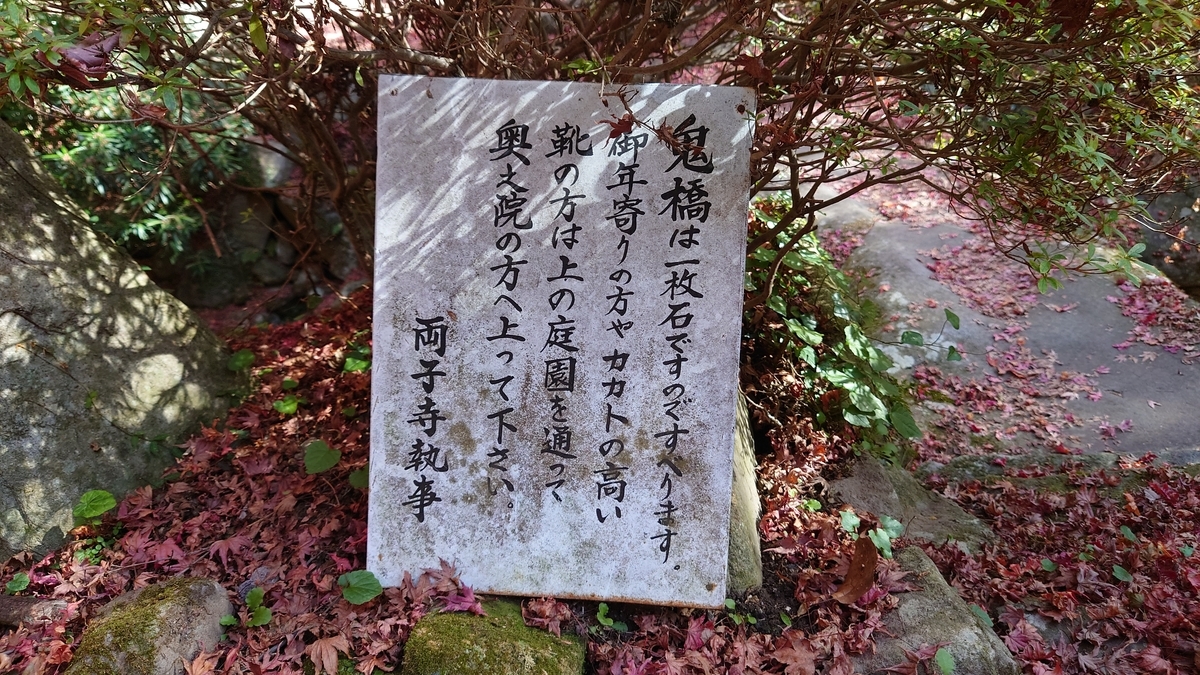 鬼橋は一枚石ですのですべります。
御年寄りの方やカカトの高い
靴の方は上の庭園を通って
奥之院の方へ上って下さい。
両子寺執事